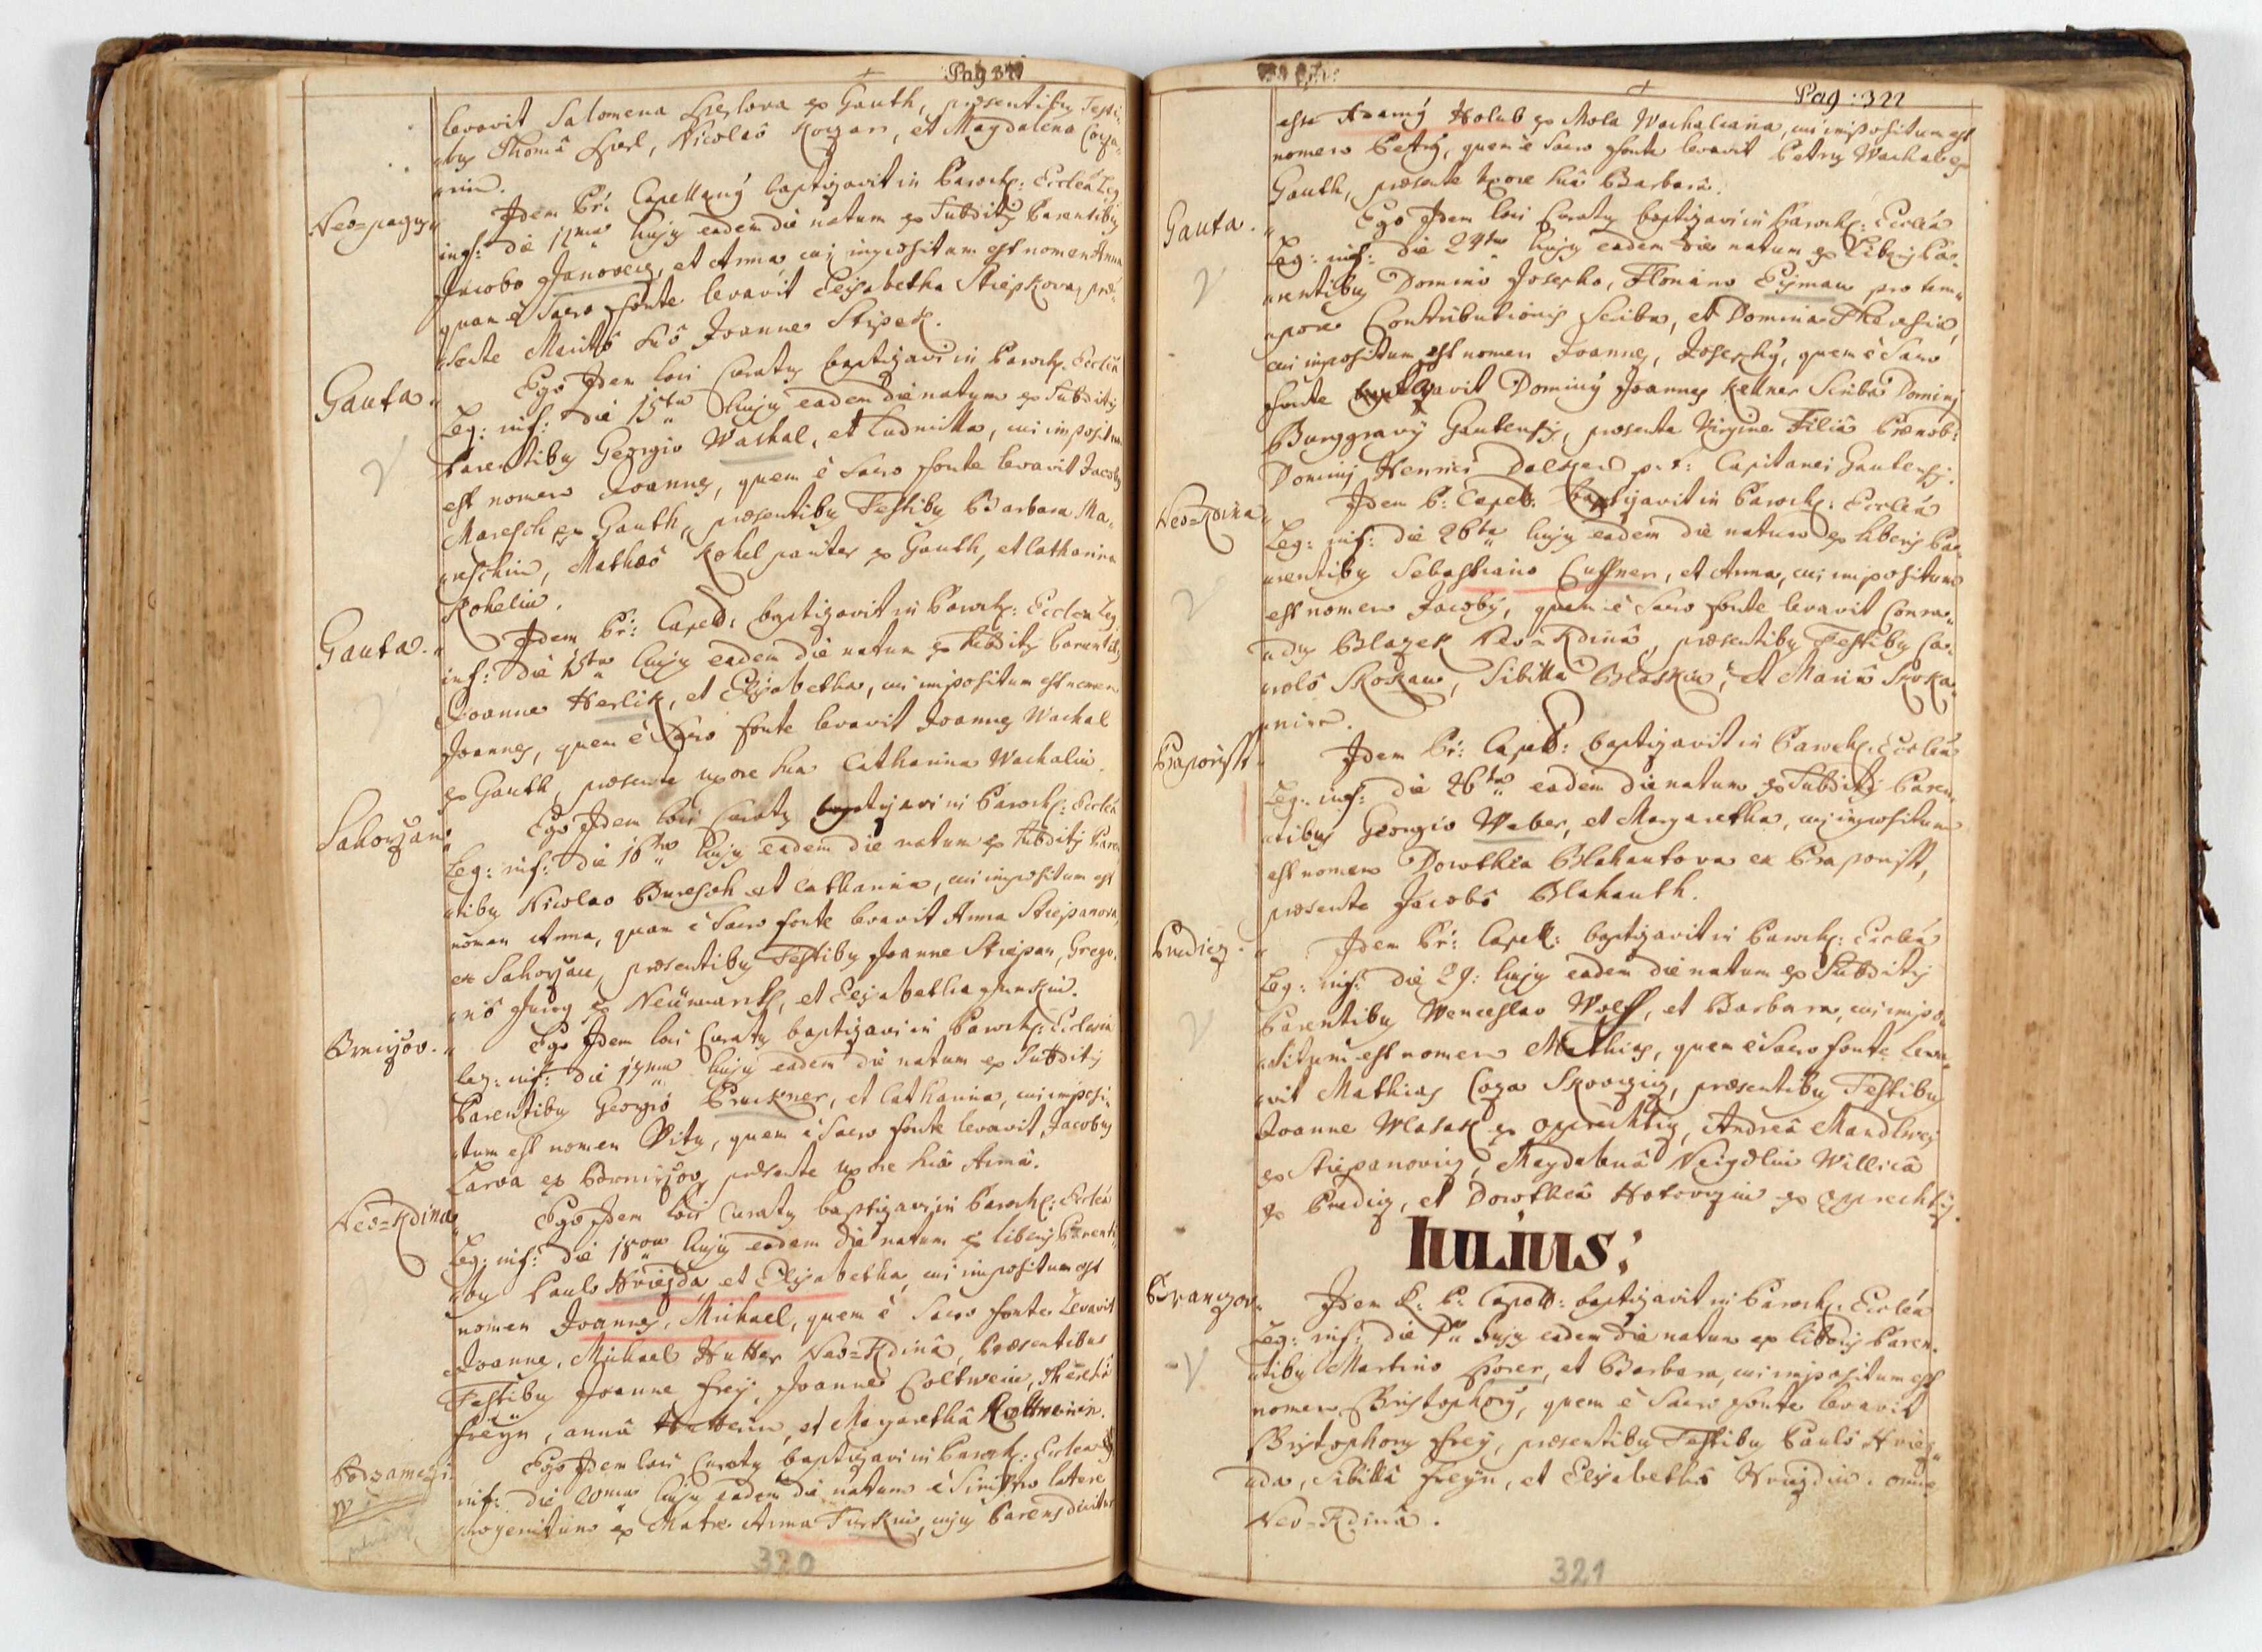 Pag 321
levavit Salomena ex Gauth, præsentibus Testi-
bus Thoma, Nicolao, et Magdalena
nin.
Neo=pagus
Idem Pr: Capellanus baptizavit in Paroch: Ecclesia Leg
inf: die 12ma hujus eadem die natum ex Subditis Parentibus
Jacobo Janovecz, et Anna cui impositum est nomen Anna
quam è Sacro fonte levavit Elisabetha Stiepkova, præ-
sente Marito suo Joanne Stipek.
Gauta.
Ego Idem loci Curatus baptizavi in Paroch: Ecclesia
Leg: inf: die 15ta hujus eadem die natum ex Subditis
Parentibus Georgio Wachal, et Ludmilla, cui impositum
est nomen Joannes, quem è Sacro fonte levavit Jacobus
Maresch ex Gauth, præsentibus Testibus Barbara Ma-
reschin, Mathæo Kohel pariter ex Gauth, et Catharina
Kohelin.
Gauta.
Idem Pr: Capell: baptizavit in Paroch: Ecclesia Leg:
inf: die 15ta hujus eadem die natum ex Subditis Parentibus
Joanne Herlik, et Elisabetha, cui impositum est nomen
Joannes, quem è Sacro fonte levavit Joannes Wachal
ex Gauth, præsente uxore sua Catharina Wachalin.
Sahorzan
Ego Idem loci Curatus baptizavi in Paroch: Ecclesia
Leg: inf: die 16ta hujus eadem die natum ex Subditis Paren
tibus Nicolao Buresch et Catharina, cui impositum est
nomen Anna, quam è Sacro fonte levavit Anna Stiepanova,
ex Sahorzan, præsentibus Testibus Joanne Stiepan, Grego-
rio Jung ex Neümarck, et Elisabetha Junkin.
Brnirzov.
Ego Idem loci Curatus baptizavi in Paroch: Ecclesia
leg: inf: die 17ma hujus eadem die natum ex Subditis
Parentibus Georgio Pruckner, et Catharina, cui imposi-
tum est nomen Vitus, quem è Sacro fonte levavit, Jacobus
Larva ex Brnirzov, præsente uxore sua Anna.
Neo=Kdina
Ego Idem loci Curatus baptizavi in Paroch: Ecclesia
Leg: inf: die 18va hujus eadem die natum ex liberis Parenti
bus Paulo Hviezda et Elisabetha, cui impositum est
nomen Joannes, Michael, quem è Sacro fonte Levavit
Joanne, Michael Hutter Neo=Kdina, Præsentibus
Testibus Joanne Freÿ, Joanne Coltwein, Theresia
Freÿn, anna Hutterin, et Margaretha Koltweinin.
Podzamczi
Ego Idem loci Curatus baptizavi in Paroch: Ecclesia Leg
inf: die 20ma hujus eadem die natum è Sinistro latere
progenitum ex Matre Anna Turkin, cujus Parens dicitur
320
Pag: 322
esse Franciscus Holub ex Mola Wachaliana, cui impositum est
nomen Petrus, quem è Sacro fonte levavit Petrus Wachal ex
Gauth, præsente Uxore sua Barbara.
Gauta.
Ego Idem loci Curatus baptizavi in Paroch: Ecclesia
Leg: inf: die 24ta hujus eadem die natum ex Liberis Pa-
rentibus Domino Josepho, Floriano Eijman pro tem-
pore Contributionis Scriba, et Domina Theresia,
cui impositum est nomen Joannes, Josephus, quem è Sacro
fonte levavit Dominus Joannes Kellner Scriba Domini
Burggravÿ Gautensis, præsente Virgine Filia Prænob:
Domini Henrici p: t: Capitanei Gautensis.
Neo=Kdina
Idem P: Capell: baptizavit in Paroch: Ecclesia
Leg: inf: die 26ta hujus eadem die natum ex liberis Pa-
rentibus Sebastiano Cuffner, et Anna, cui impositum
est nomen Jacobus, quem è Sacro fonte levavit Conra-
dus Blazek Neo=Kdina, præsentibus Testibus Ca-
rolo Skokan, Sibilla Blaskin, et Maria Skoka-
nin.
Praporischt
Idem Pr: Capell: baptizavit in Paroch: Ecclesia
Leg: inf: die 26ta eadem die natum ex Subditis Paren-
tibus Georgio Weber, et Margaretha, cui impositum
est nomen Dorothea Blahautova ex Praporischt,
præsente Jacobo Blahauth.
Prudicz.
Idem Pr: Capell: baptizavit in Paroch: Ecclesia
Leg: inf: die 29: hujus eadem die natum ex Subditis
Parentibus Wenceslao Wolff, et Barbara, cui impo-
situm est nomen Mathias, quem è Sacro fonte leva-
vit Mathias Coza Skoviczin, præsentibus Testibus
Joanne Wlasak ex Oprechtiz, Andrea Mandlwei
ex Stiepanoviz, Magdalena Neigdlin Willica
ex Prudiz, et Dorothea Hotovczin ex Oprechtiz.
Iulius:
Branczov.
Idem R: P: Capell: baptizavit in Paroch: Ecclesia
Leg: inf: die 1ma hujus eadem die natum ex liberis Paren-
tibus Martino Porer, et Barbara, cui impositum est
nomen Christophorus, quem è Sacro fonte levavit
Christophorus Freÿ, præsentibus Testibus Paulo Hviez-
da, Sibilla Freÿn, et Elisabetha Hviezdin. omnes
Neo=Kdina.
321